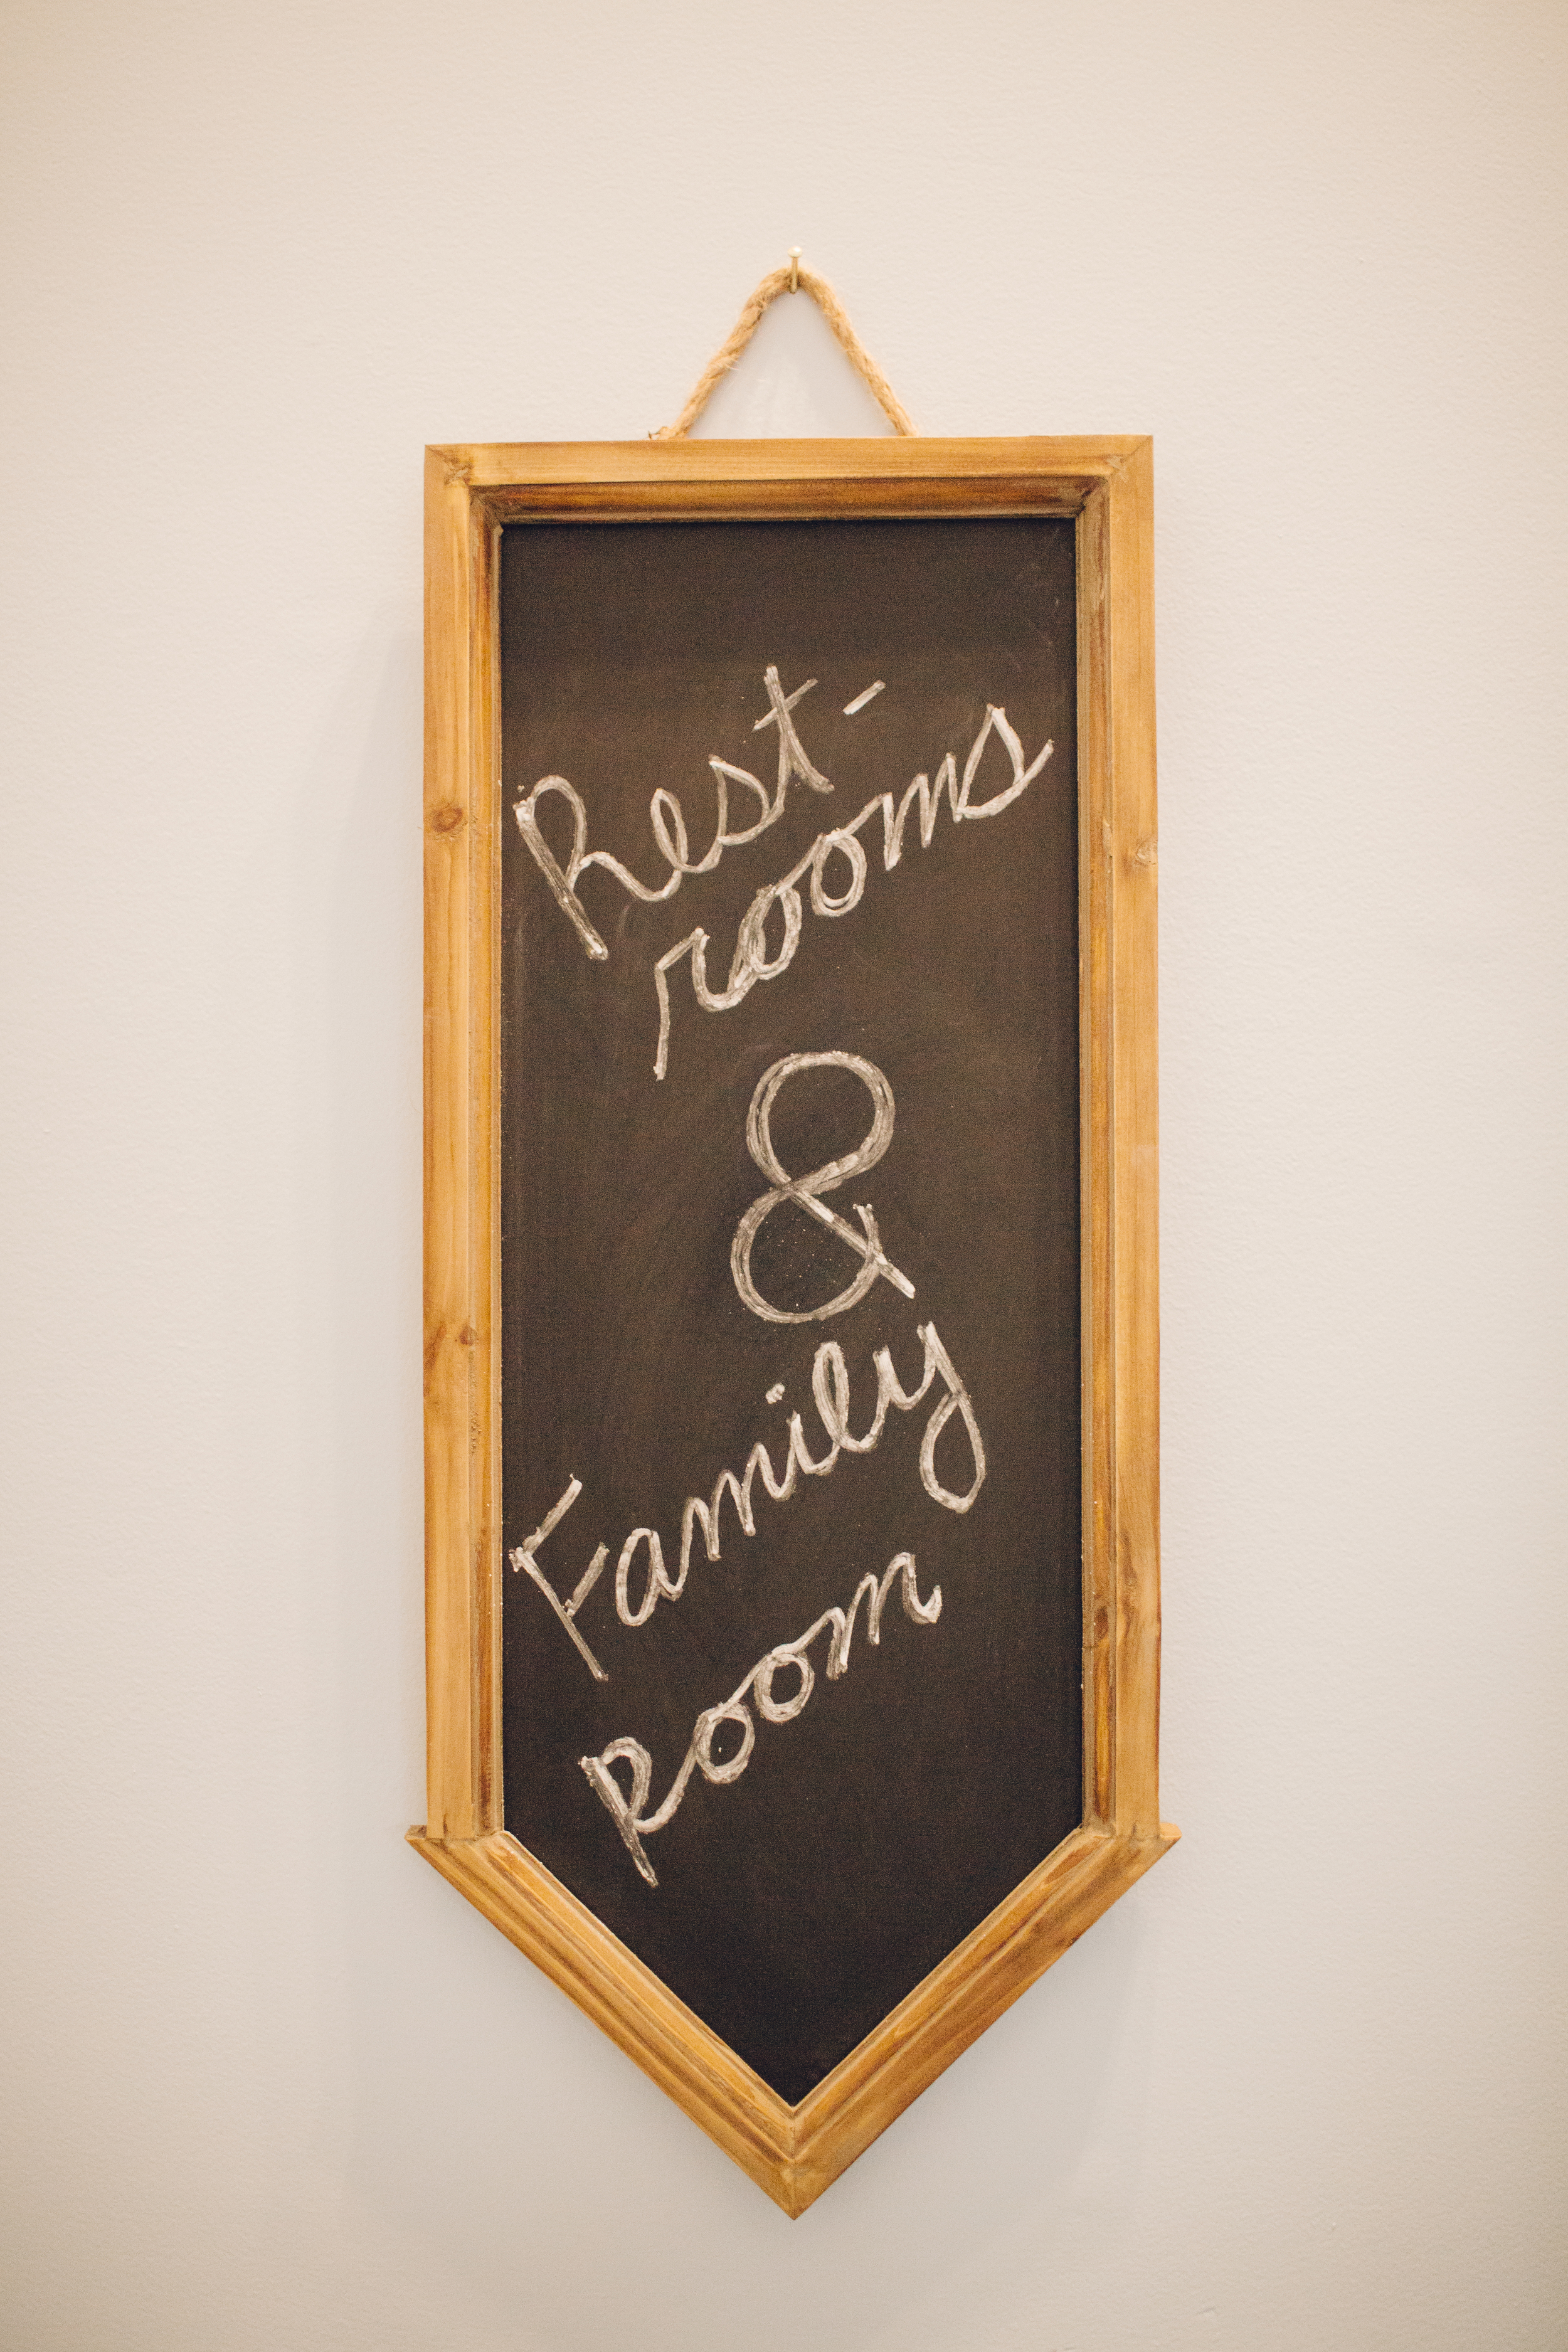 Rest-
rooms
&
Family
Room